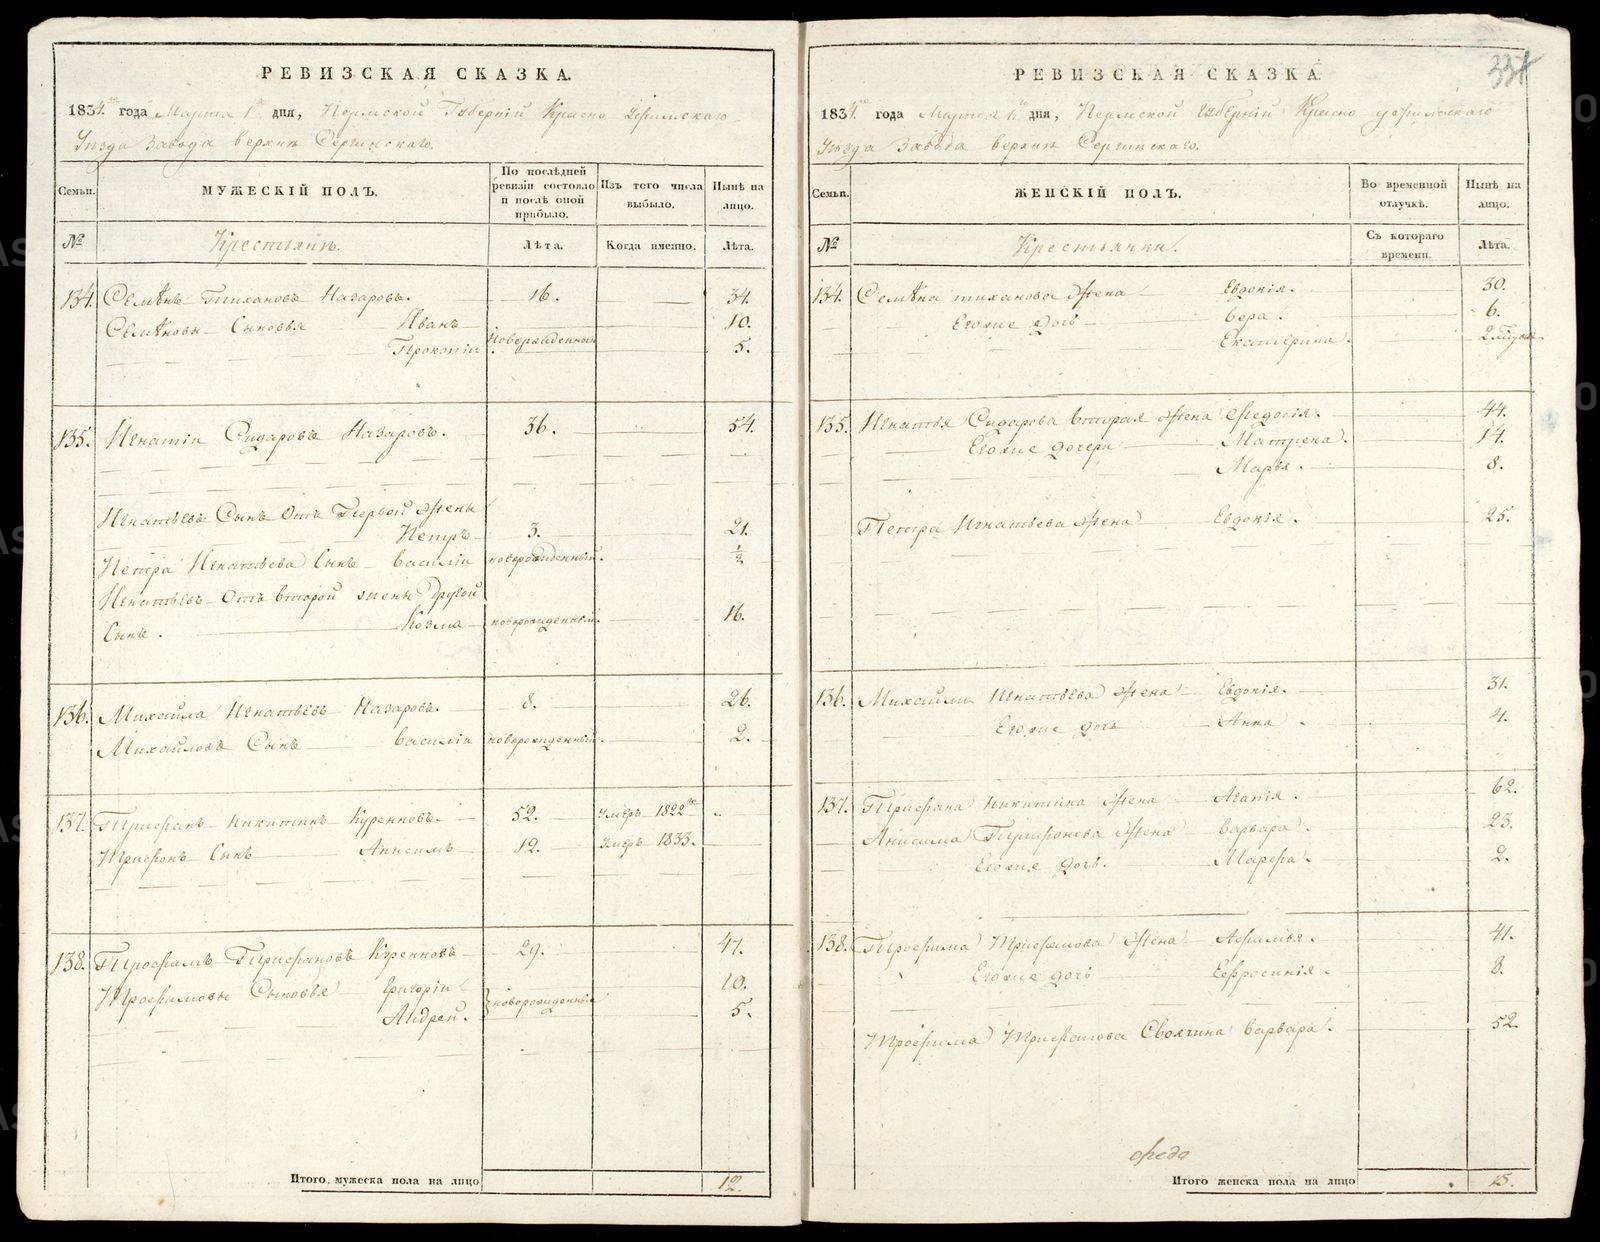 РЕВИЗСКАЯ СКАЗКА.
1834.го года Марта 1го дня, Пермской Губерніи Красно Уфимскаго
Уезда Завода верхнѣ Сергинскаго.
Семьи.
МУЖЕСКІЙ ПОЛЪ.
По послѣдней ревизіи состояло и послѣ оной прибыло.
Изъ того числа выбыло.
Нынѣ на лицо.
№
Крестьянѣ.
Лѣта.
Когда именно.
Лѣта.
134. Семѣнъ Тихановъ Назаровъ. 16. 34.
Семѣновы Сыновья Иванъ 10.
Прокопіи новорожденныи 5.
135. Игнатіи Сидаровъ Назаровъ. 36. 54.
Игнатьевъ Сынъ Отъ Первой жены
Петръ 3. 21.
Петра Игнатьева Сынъ Василіи новорожденный. ½
Игнатьевъ Отъ второй жены другой
Сынъ. Козма новорожденный. 16.
136. Михайла Игнатьевъ Назаровъ. 8. 26.
Михайловъ Сынъ Василіи новорожденный. 2.
137. Трифанъ Никитинъ Куренновъ. 52. Умеръ 1822го
Трифонъ Сынъ Анисимъ 12. Умеръ 1833.
138. Трофимъ Трифановъ Куренновъ 29. 47.
Трофимовы Сыновья Григоріи 10.
Андрей. новорожденные 5.
Итого мужеска пола на лицо 12.
331
РЕВИЗСКАЯ СКАЗКА
1834.го года Марта 1го дня, Пермской Губерніи Красно уфимскаго
Уезда Завода верхнѣ Сергинскаго.
Семьи.
ЖЕНСКІЙ ПОЛЪ.
Во временной отлучкѣ.
Нынѣ на лицо.
№
Крестьянки.
Съ котораго времени.
Лѣта.
134. Семѣна тиханова жена Евдокія. 30.
Егоже дочь Вера. 6.
Екатерина. 2
135. Игнатья Сидарова вторая жена Федосія. 44.
Егоже дочери Матрена. 14.
Марья. 8.
Петра Игнатьева жена Евдокія. 25.
136. Михайли Игнатьева жена Евдокія. 31.
Егоже дочь Анна. 4.
137. Трифана Никитина жена Агапія. 62.
Анисима Трифонова жена Варвара. 23.
Егоже дочь. Марфа. 2.
138. Трофима Трифанова жена Афимья. 41.
Егоже дочь Ефросинія. 8.
Трофима Трифанова Своячина Варвара. 52.
Итого женска пола на лицо 15.